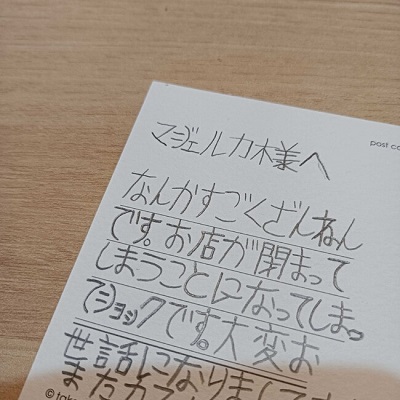 マジェルカ様へ
post ca
なんかすごくざんねん
です。お店が閉まって
しまうことになってしまっ
てショックです。大変お
世話になりまして
© take